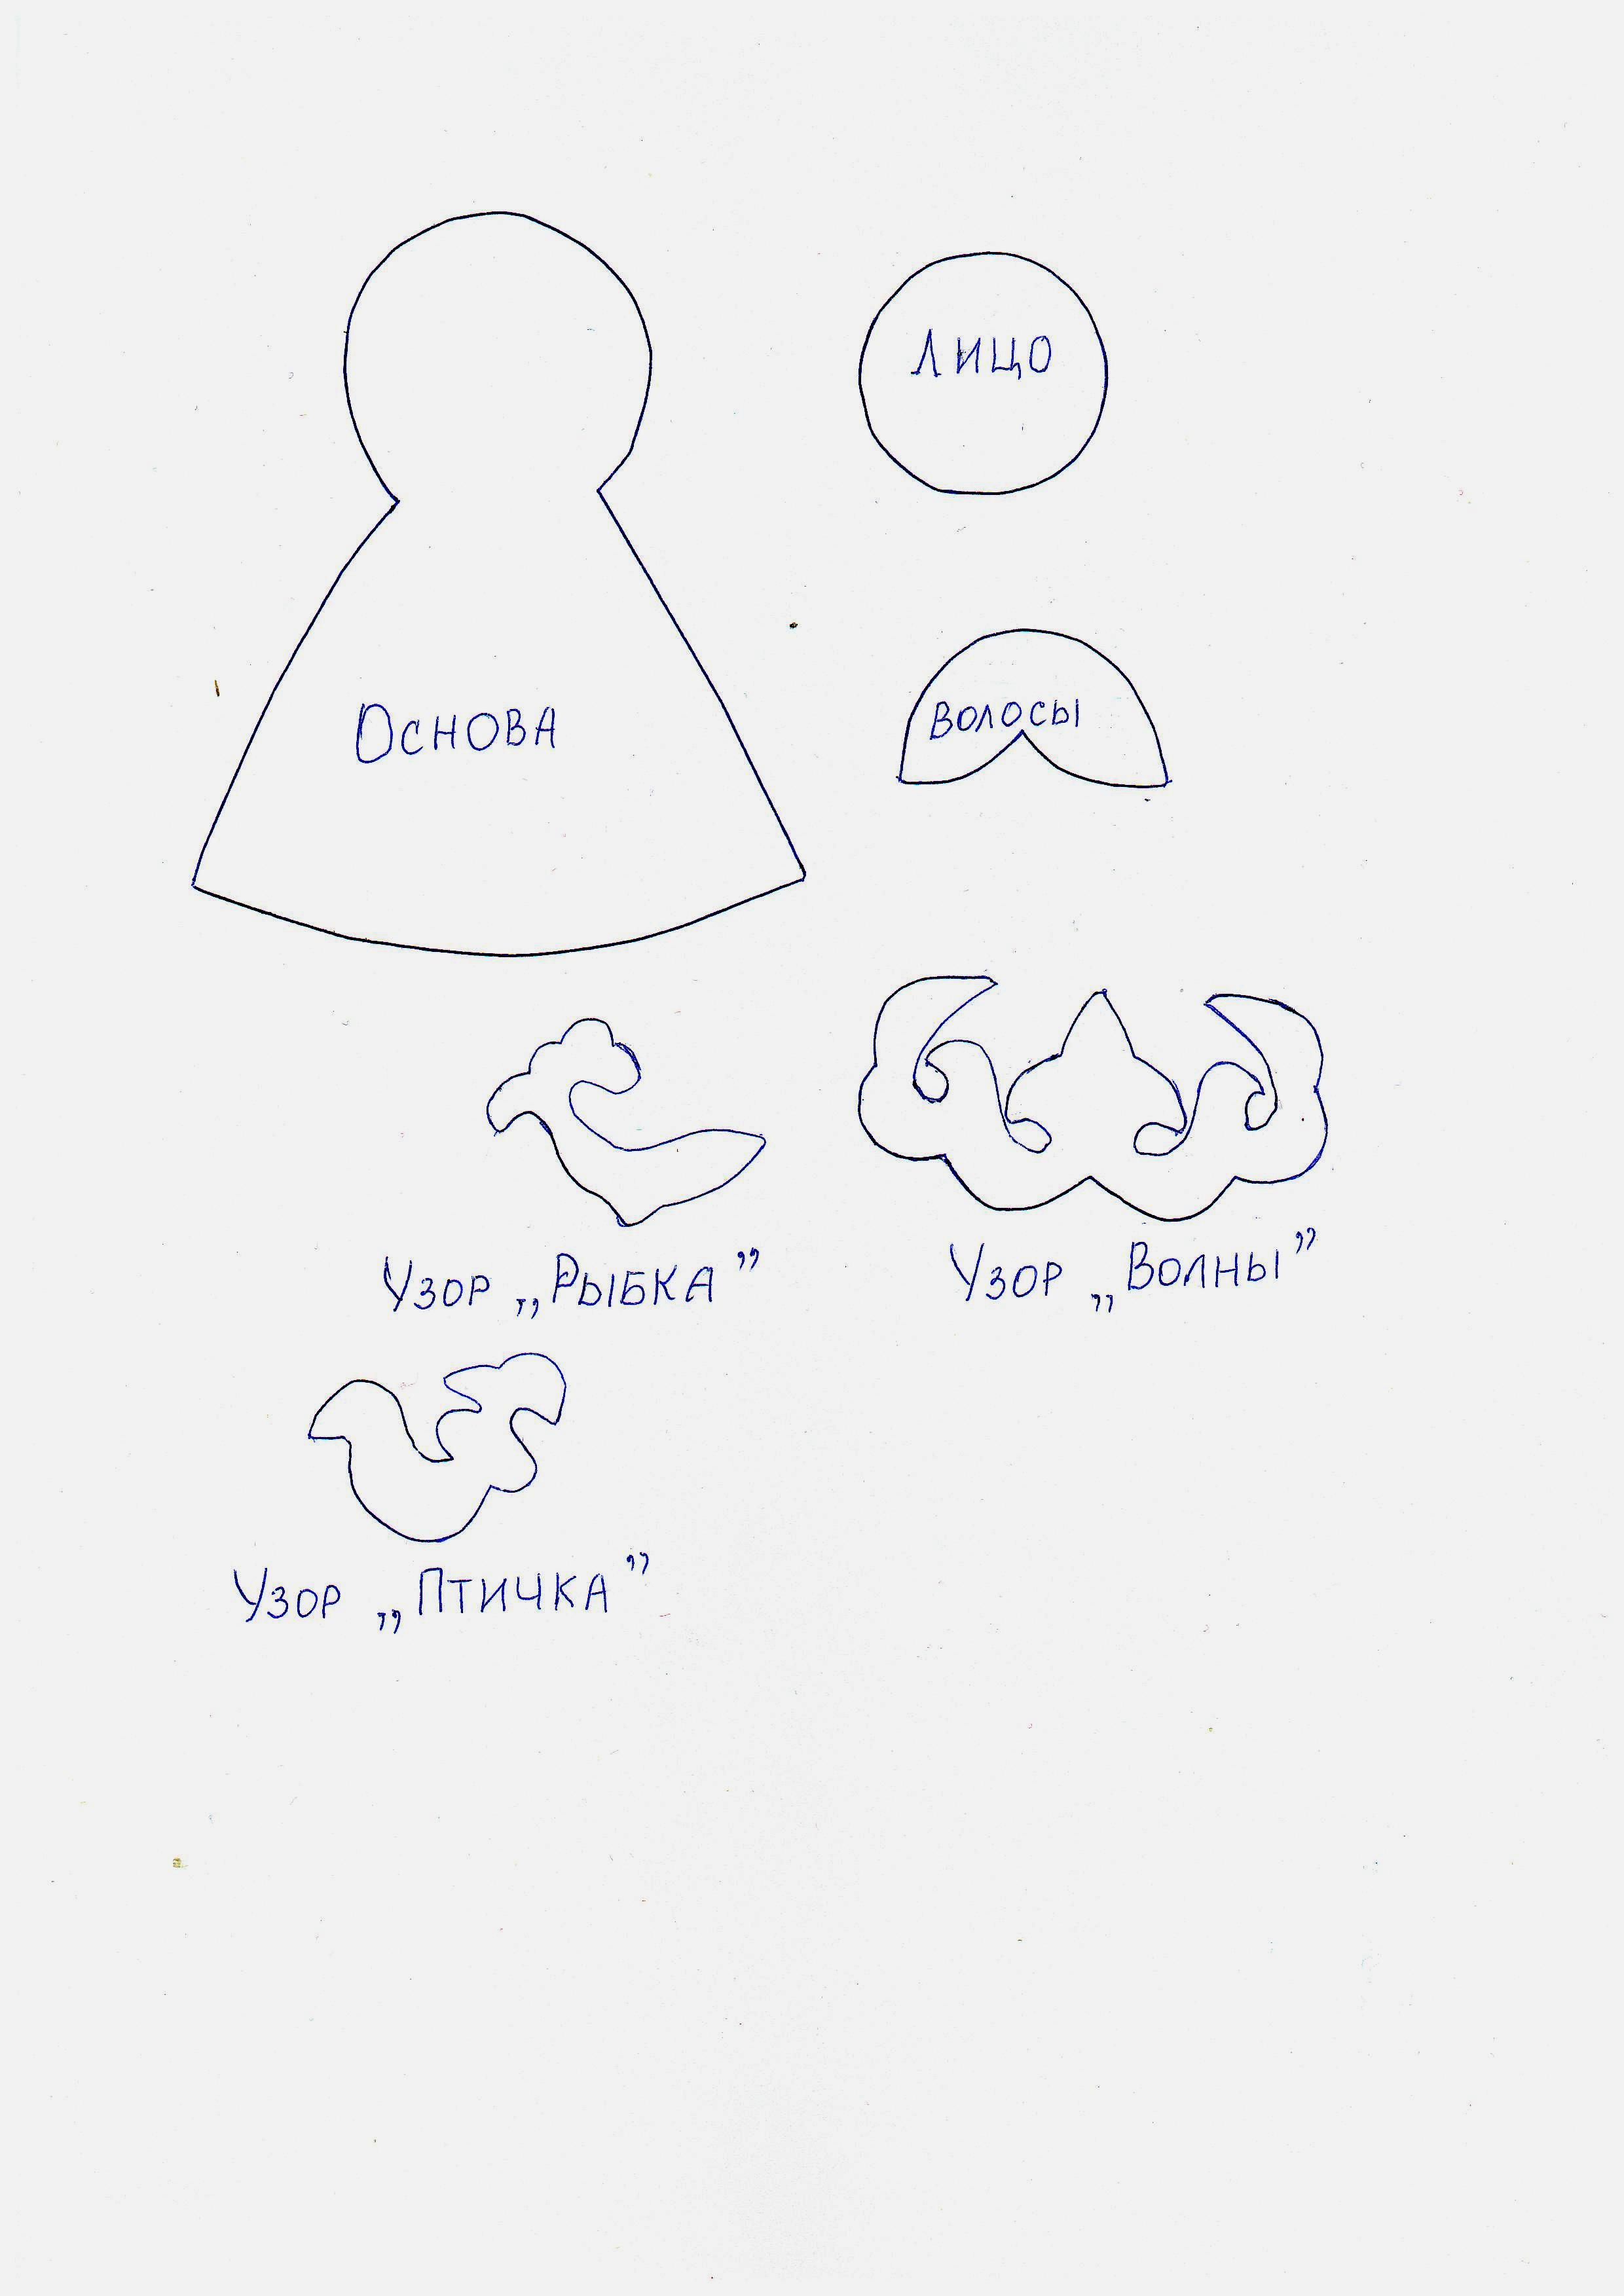 Лицо
Волосы
Основа
Узор „Рыбка”
Узор „Волны”
Узор „Птичка”